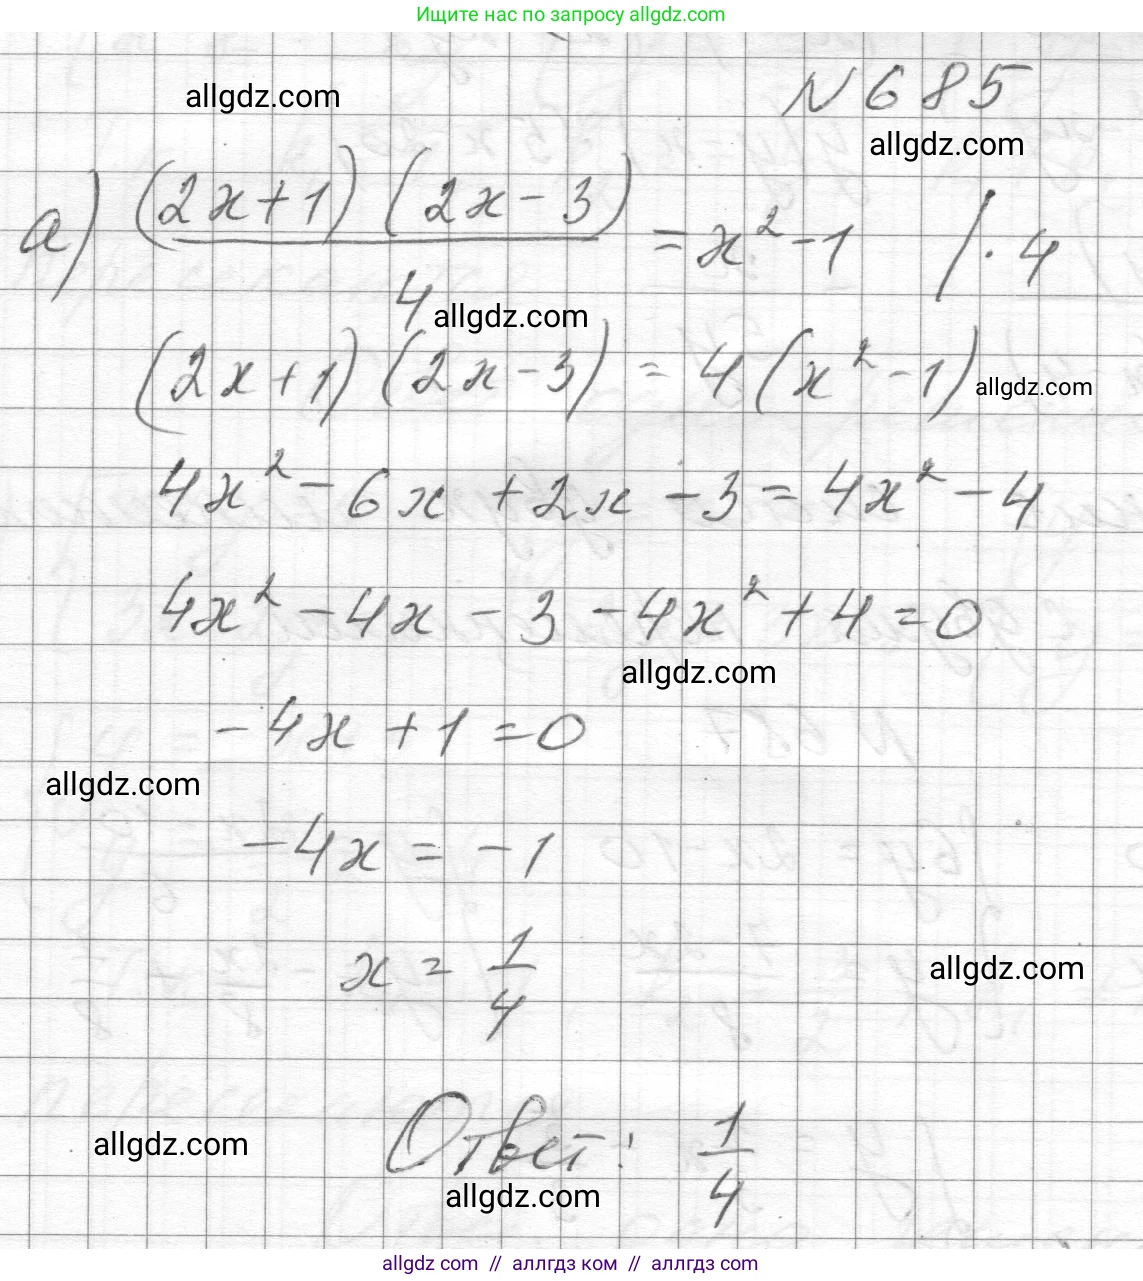 Ищите нас по запросу allgdz.com
allgdz.com
N 685
allgdz.com
а) (2x+1)(2x-3)/4 = x² - 1 /·4
allgdz.com
(2x+1)(2x-3) = 4(x²-1)
allgdz.com
4x² - 6x + 2x - 3 = 4x² - 4
4x² - 4x - 3 - 4x² + 4 = 0
allgdz.com
-4x + 1 = 0
allgdz.com
-4x = -1
x = 1/4
allgdz.com
allgdz.com
Ответ: 1/4
allgdz.com
allgdz com // аллгдз ком // аллгдз com